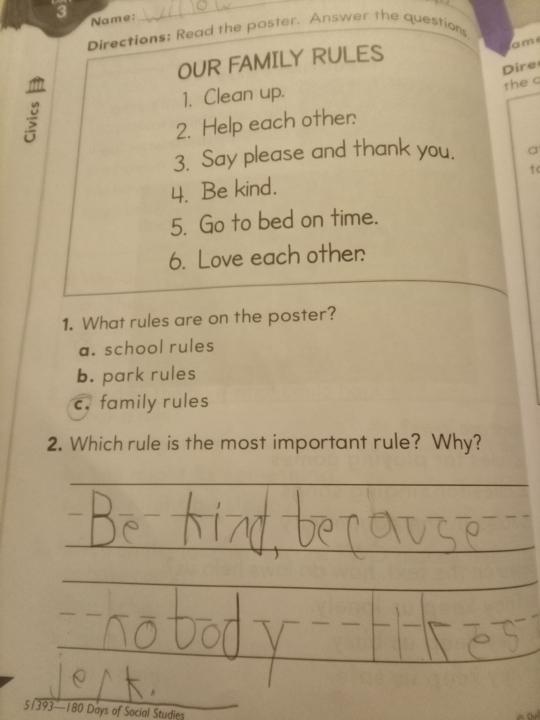 3
Name: Willow
Directions: Read the poster. Answer the questions.
Civics
OUR FAMILY RULES
1. Clean up.
2. Help each other.
3. Say please and thank you.
4. Be kind.
5. Go to bed on time.
6. Love each other.
1. What rules are on the poster?
a. school rules
b. park rules
c. family rules
2. Which rule is the most important rule? Why?
Be kind, because
nobody likes
jerk.
51393—180 Days of Social Studies
ame
Dire
the c